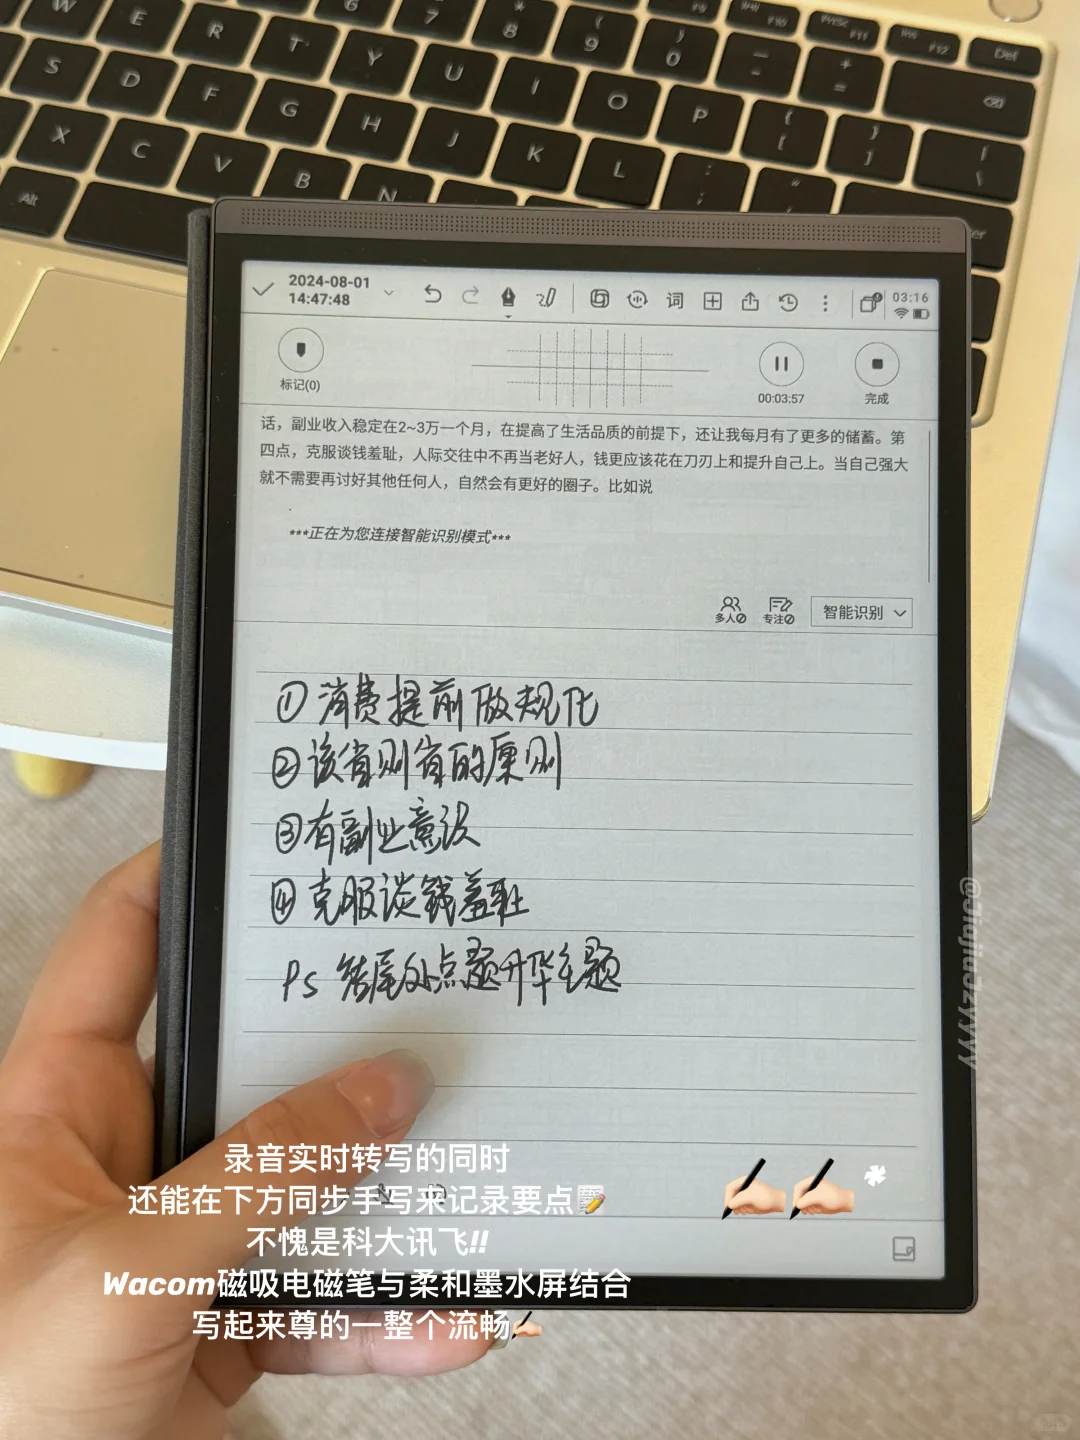 W E R T Y U I O P
6 7 8 9 0
Del
S D F G H J K L
X C V B N
Alt
2024-08-01
14:47:48
词
03:16
标记(0)
00:03:57
完成
话，副业收入稳定在2~3万一个月，在提高了生活品质的前提下，还让我每月有了更多的储蓄。第
四点，克服谈钱羞耻，人际交往中不再当老好人，钱更应该花在刀刃上和提升自己上。当自己强大
就不需要再讨好其他任何人，自然会有更好的圈子。比如说
***正在为您连接智能识别模式***
多人
专注
智能识别
①消费提前做规化
②该省则省的原则
③有副业意识
④克服谈钱羞耻
Ps 结尾处点题升华主题
@JiajiaJzyyyyy
录音实时转写的同时
还能在下方同步手写来记录要点📝
不愧是科大讯飞‼️
Wacom磁吸电磁笔与柔和墨水屏结合
写起来尊的一整个流畅✍🏻
✍🏻✍🏻